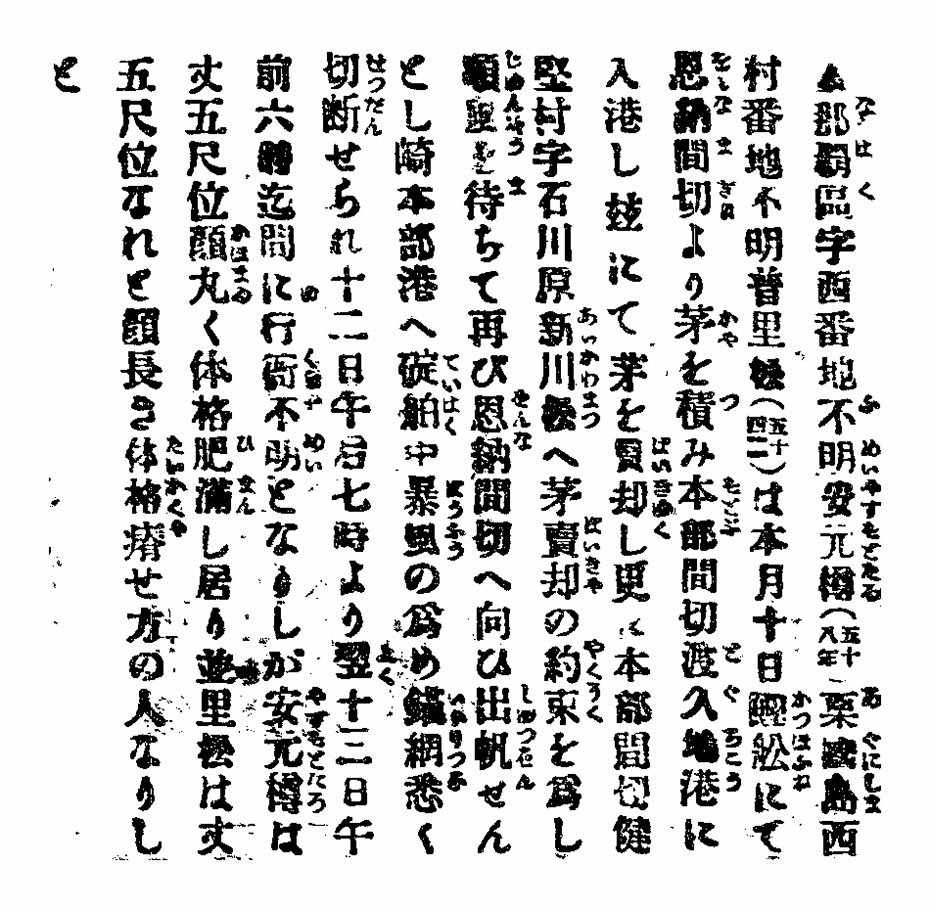 ▲那覇區字西番地不明安元樽(五十八年)粟國島西
村番地不明普里松(五十四二)は本月十日鰹舩にて
恩納間切より茅を積み本部間切渡久地港に
入港し玆にて茅を賣却し更に本部間切健
堅村字石川原新川松へ茅賣却の約束を爲し
順風を待ちて再び恩納間切へ向ひ出帆せん
とし崎本部港へ碇舶中暴風の爲め錨網悉く
切断せられ十二日午后七時より翌十三日午
前六時迄間に行衙不明となりしが安元樽は
丈五尺位顔丸く体格肥滿し居り並里松は丈
五尺位なれど顔長き体格瘠せ方の人なりし
と